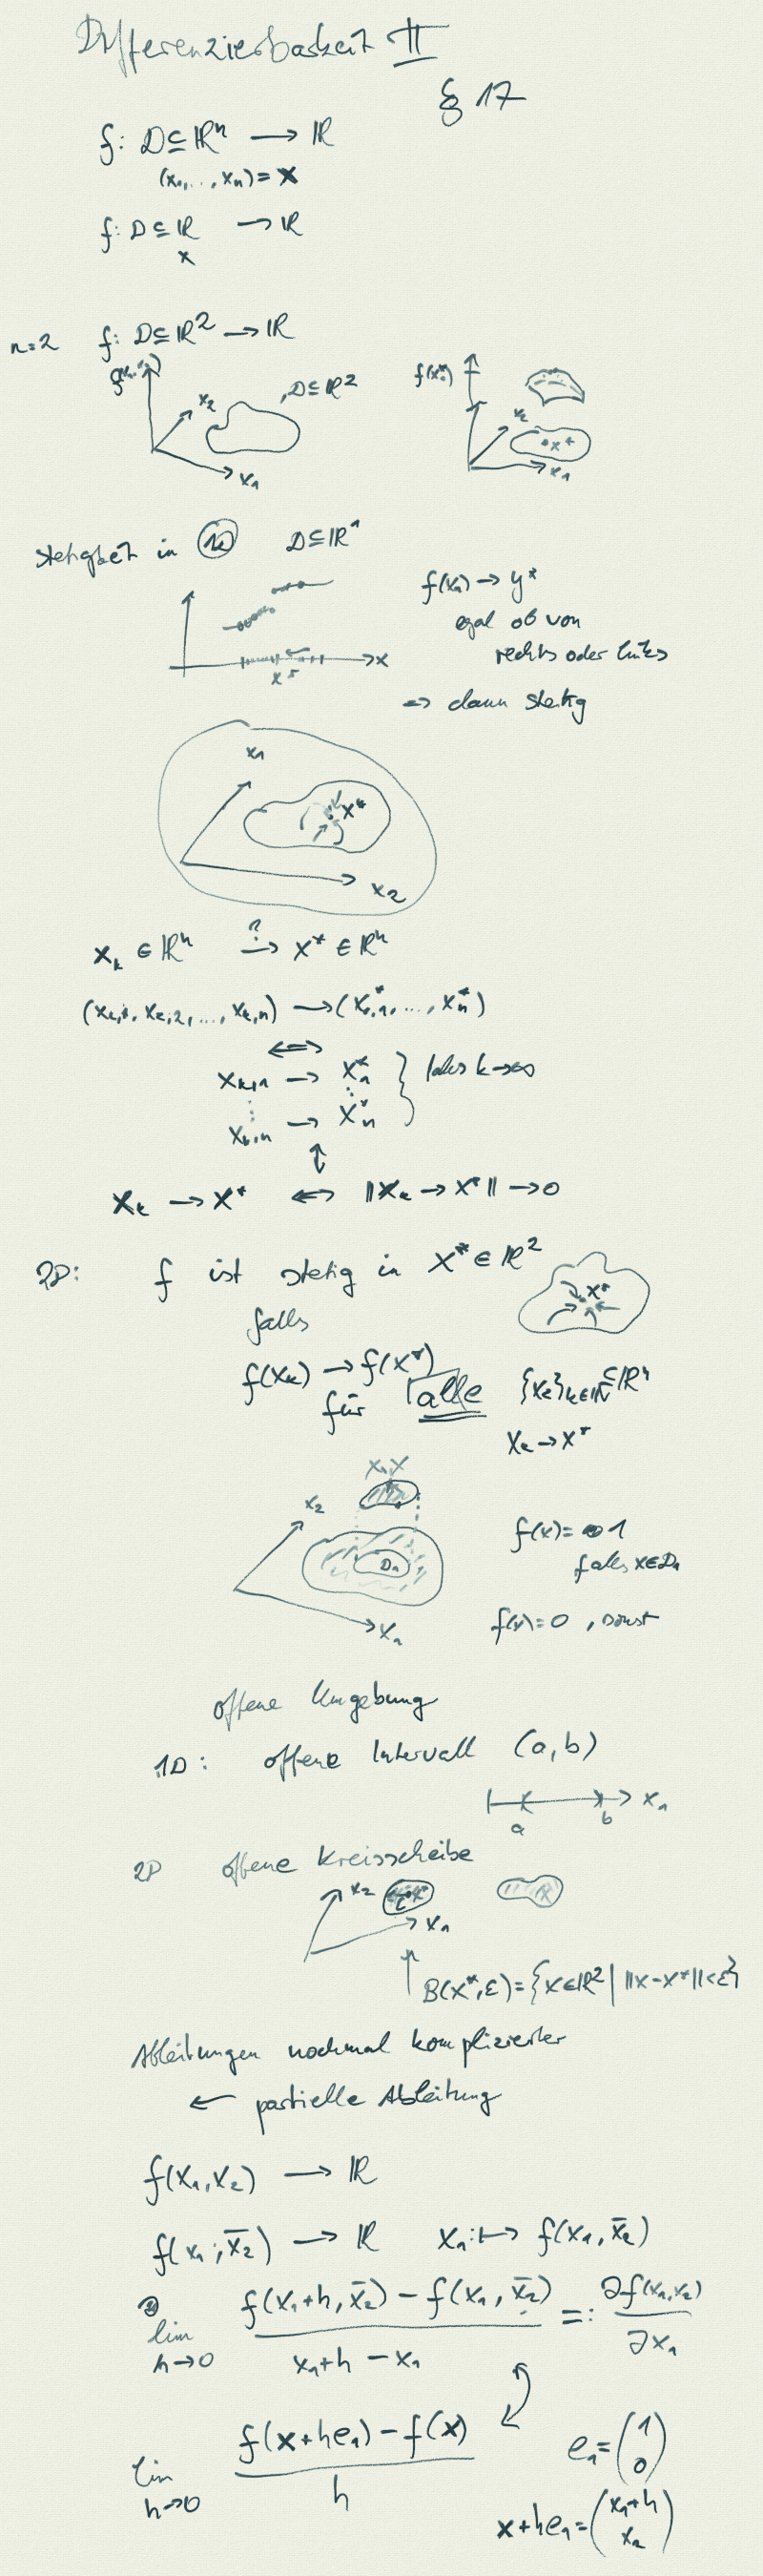 Differenzierbarkeit II
§ 17
f: D⊆ℝⁿ → ℝ
(x₁,..., xₙ) = x
f: D⊆ℝ → ℝ
x
n=2 f: D⊆ℝ² → ℝ
x₂ D⊆ℝ²
x₁
f(x*)
x₂ x*
x₁
Stetigkeit in D⊆ℝ¹
f(xₙ) → y*
egal ob von
rechts oder links
x* x
=> dann stetig
x₁
x*
x₂
x_k ∈ ℝⁿ →? x* ∈ ℝⁿ
(x_{k,1}, x_{k,2}, ..., x_{k,n}) → (x*_1, ..., x*_n)
⟺
x_{k,1} → x*_1 } k→∞
⋮ ⋮
x_{k,n} → x*_n
↕
x_k → x* ⟺ ||x_k → x*|| → 0
2D: f ist stetig in x* ∈ ℝ²
x*
falls
f(x_k) → f(x*)
für alle {x_k}_{k∈ℕ} ⊆ ℝⁿ
x_k → x*
x₂
D₁
x₁
f(x) = 1
falls x∈D₁
f(x) = 0 , sonst
offene Umgebung
1D: offene Intervall (a,b)
a b x₁
2D offene Kreisscheibe
x₂ x*
x₁
B(x*,ε) = {x∈ℝ² | ||x-x*|| < ε}
Ableitungen nochmal komplizierter
← partielle Ableitung
f(x₁,x₂) → ℝ
f(x₁, x̄₂) → ℝ x₁ :↦ f(x₁, x̄₂)
lim h→0 (f(x₁+h, x̄₂) − f(x₁, x̄₂)) / (x₁+h − x₁) =: ∂f(x₁,x₂) / ∂x₁
lim h→0 (f(x+he₁) − f(x)) / h
e₁ = (1 0)
x+he₁ = (x₁+h x₂)